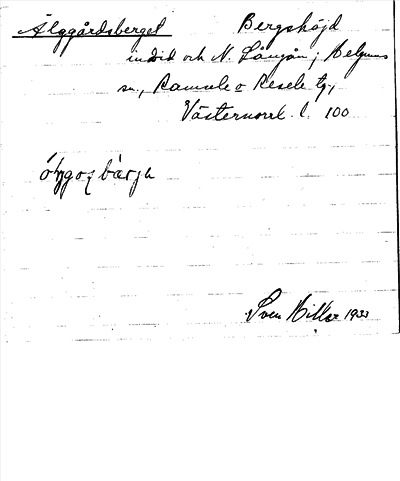 Älggårdsberget Bergshöjd
och N. Långån; Helgums
sn., Ramsele o Resele tg.,
Västernorrl. l. 100
Sven Hiller 1933